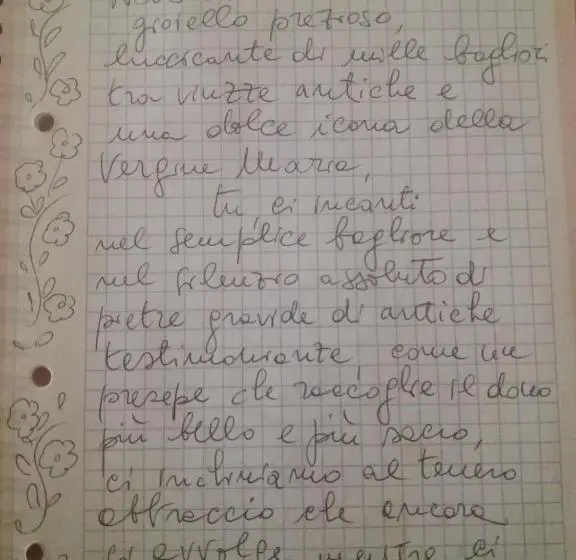 gioiello prezioso,
luccicante di mille bagliori
tra viuzze antiche e
una dolce icona della
Vergine Maria,
tu ci incanti
nel semplice bagliore e
nel silenzio assoluto di
pietre gravide di antiche
testimonianze, come un
presepe che raccoglie il dono
più bello e più sacro,
ci inchiniamo al tenero
abbraccio che ancora
ci avvolge mentre ci